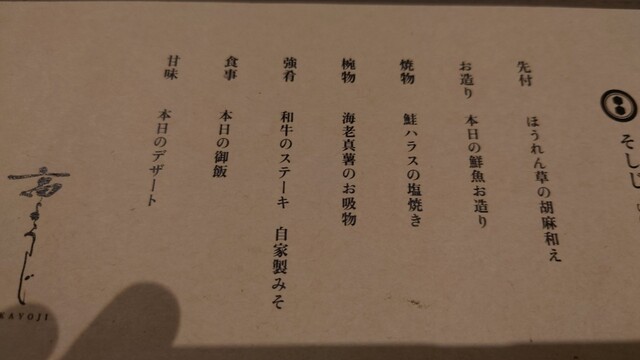 そしじ
先付　ほうれん草の胡麻和え
お造り　本日の鮮魚お造り
焼物　鮭ハラスの塩焼き
椀物　海老真薯のお吸物
強肴　和牛のステーキ　自家製みそ
食事　本日の御飯
甘味　本日のデザート
高ようじ
KAYOJI